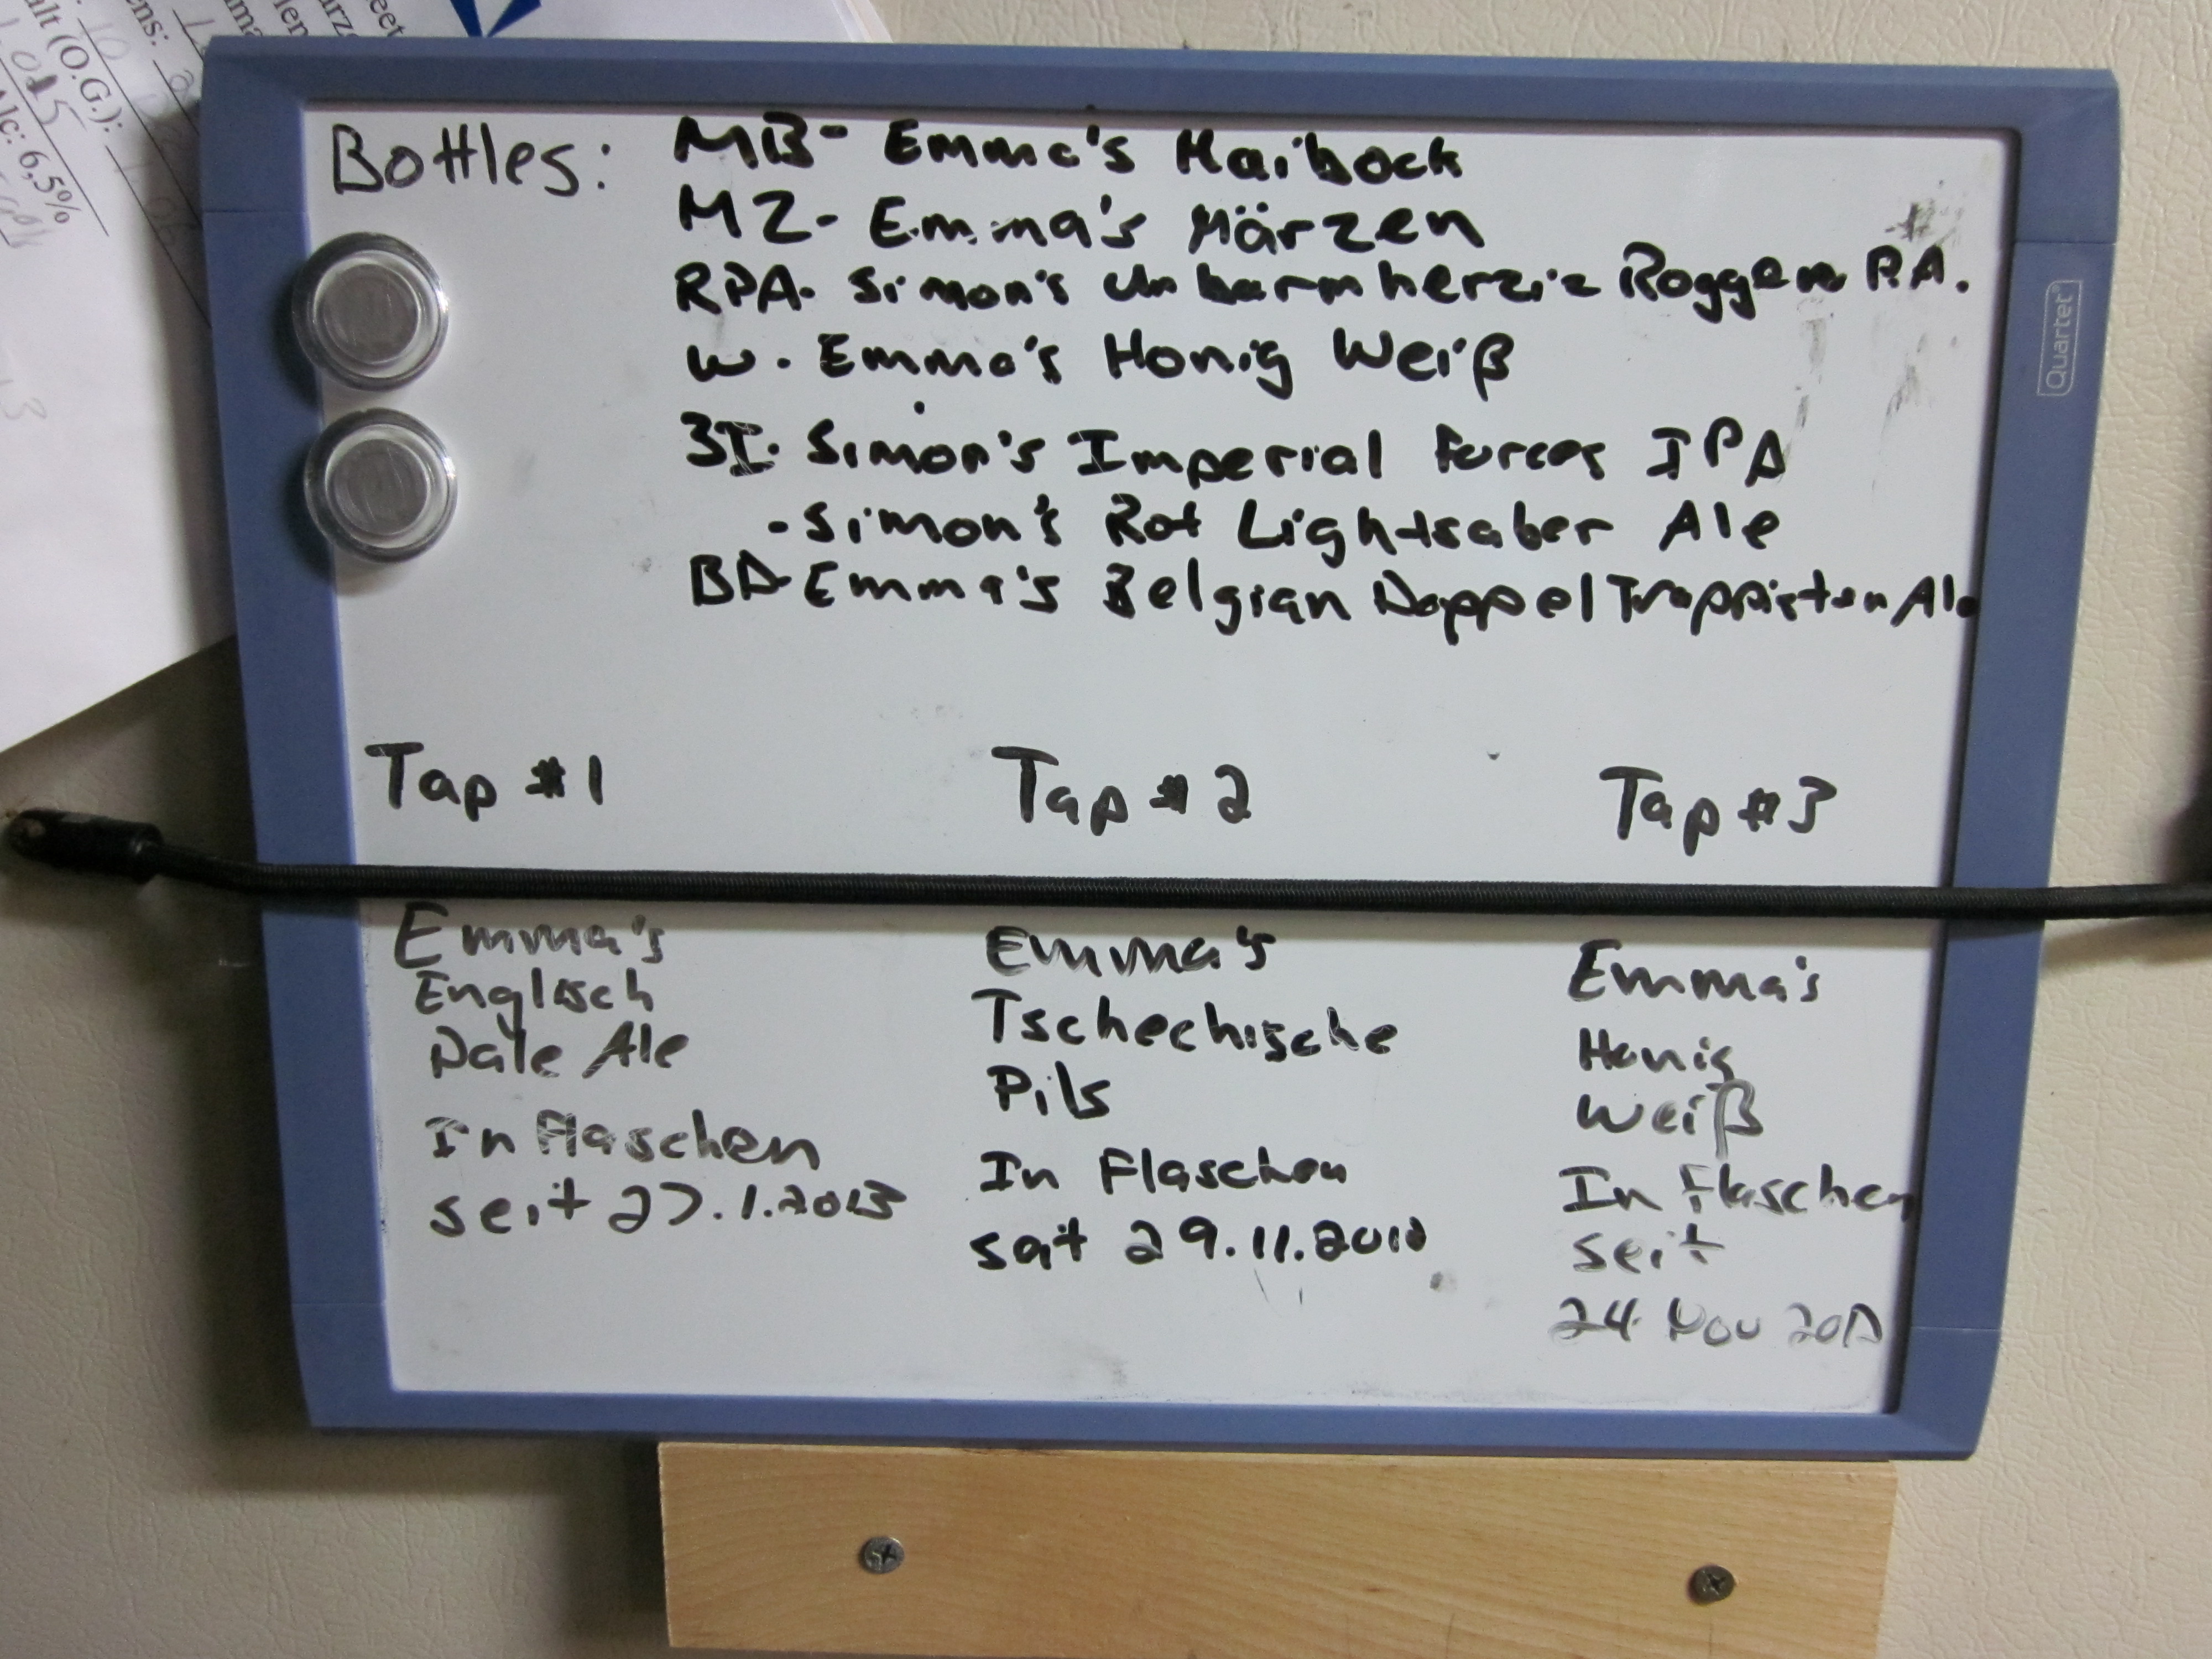 Bottles:
MB- Emma's Maibock
MZ- Emma's Märzen
RPA- Simon's Unbarmherzig Roggen P.A.
W. Emma's Honig Weiß
3I. Simon's Imperial Forces IPA
-Simon's Rot Lightsaber Ale
BD-Emma's Belgian Doppel Trappisten Ale
Tap #1
Tap #2
Tap #3
Emma's
Englisch
Pale Ale
In Flaschen
seit 27.1.2013
Emma's
Tschechische
Pils
In Flaschen
seit 29.11.2012
Emma's
Honig
Weiß
In Flaschen
seit
24. Nov 2012
Quartet
alt (O.G.):
Alc: 6,5%